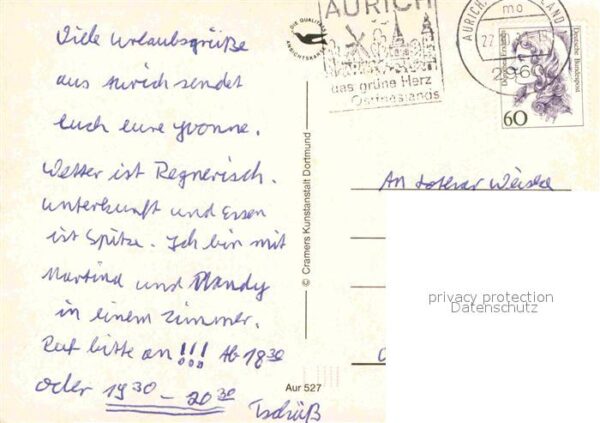 Viele Urlaubsgrüße
aus Aurich sendet
Euch eure Yvonne.
Wetter ist Regnerisch.
Unterkunft und Essen
ist Spitze. Ich bin mit
Martina und Mandy
in einem Zimmer.
Ruf bitte an!!! Ab 18 30
oder 19 30 - 20 30
Tschüß
DIE QUALITÄTS
ANSICHTSKARTE
© Cramers Kunstanstalt Dortmund
Aur 527
AURICH
das grüne Herz
Ostfrieslands
AURICH,
mo
2960
Deutsche Bundespost
60
An Lothar
privacy protection
Datenschutz